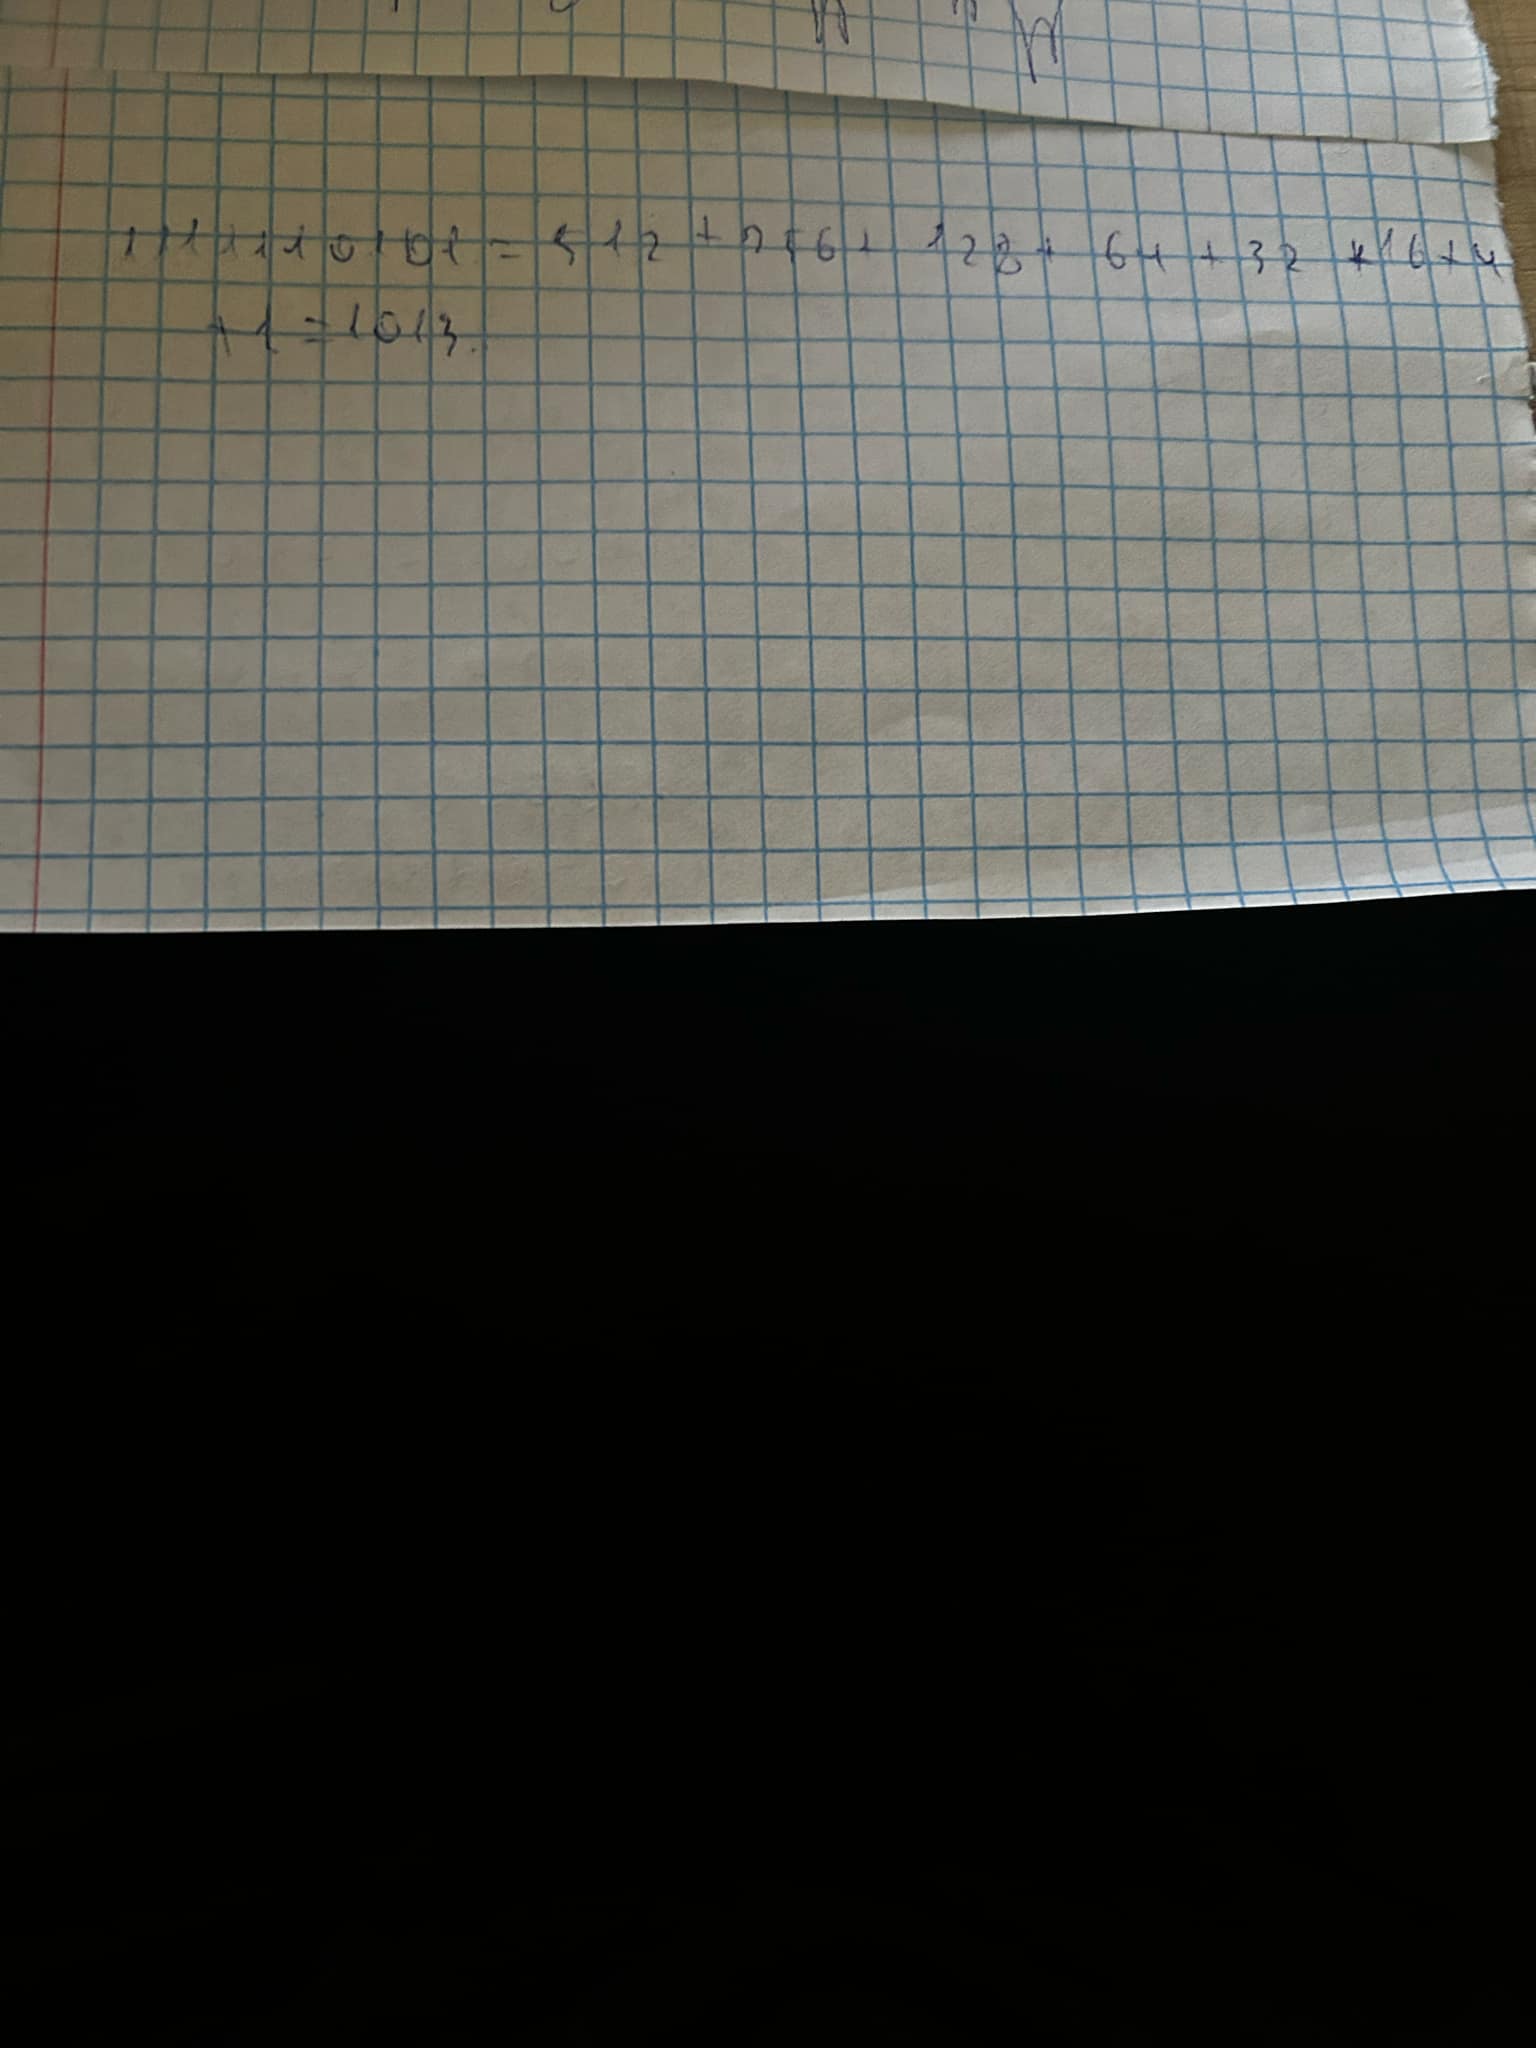 1111110101 = 512 + 256 + 128 + 64 + 32 + 16 + 4
+ 1 = 1013.